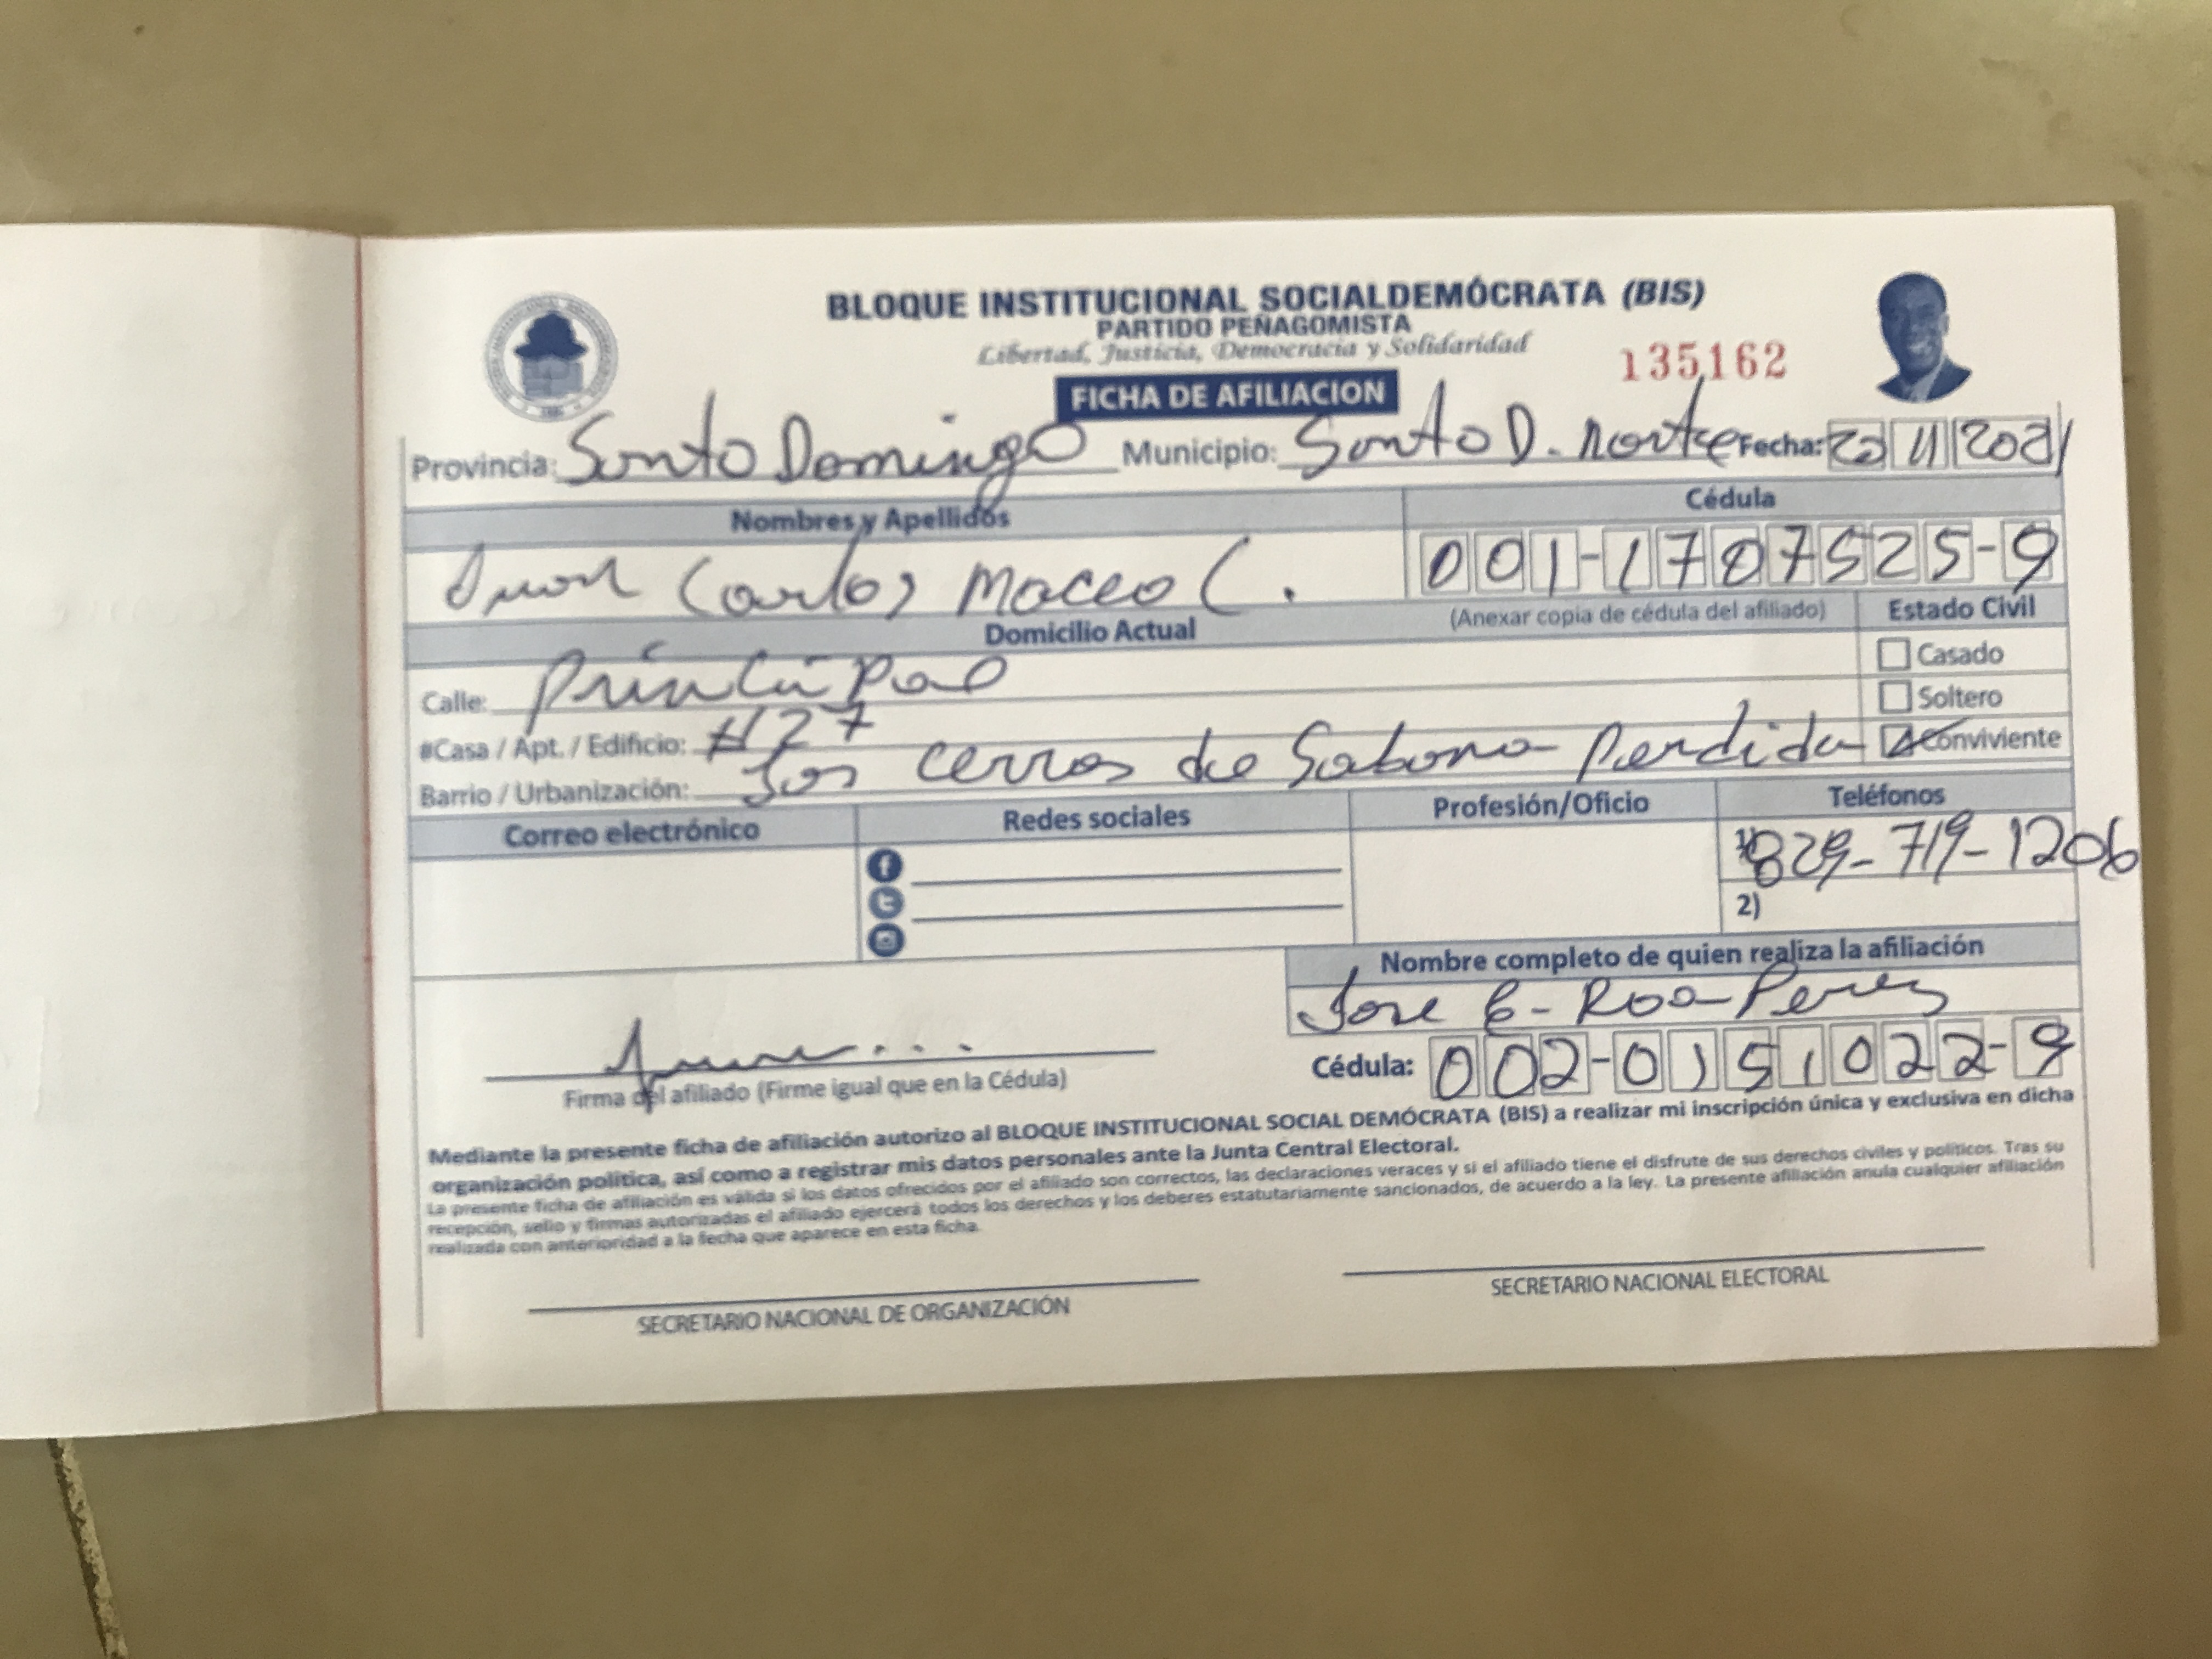 BLOQUE INSTITUCIONAL SOCIALDEMÓCRATA (BIS)
PARTIDO PEÑAGOMISTA
Libertad, Justicia, Democracia y Solidaridad
135162
FICHA DE AFILIACION
Provincia: Santo Domingo Municipio: Santo D. norte Fecha: 20 11 2021
Nombres y Apellidos Cédula
Juan Carlos Maceo C. 001-1707525-9
Domicilio Actual (Anexar copia de cédula del afiliado) Estado Civil
Calle: Principal Casado
Soltero
#Casa / Apt. / Edificio: #27
Barrio / Urbanización: Los cerros de Sabana Perdida Conviviente
Correo electrónico Redes sociales Profesión/Oficio Teléfonos
1) 829-719-1206
2)
Nombre completo de quien realiza la afiliación
Jose E- Roa Perez
Cédula: 002-0151022-9
Firma del afiliado (Firme igual que en la Cédula)
Mediante la presente ficha de afiliación autorizo al BLOQUE INSTITUCIONAL SOCIAL DEMÓCRATA (BIS) a realizar mi inscripción única y exclusiva en dicha
organización política, así como a registrar mis datos personales ante la Junta Central Electoral.
La presente ficha de afiliación es válida si los datos ofrecidos por el afiliado son correctos, las declaraciones veraces y si el afiliado tiene el disfrute de sus derechos civiles y políticos. Tras su
recepción, sello y firmas autorizadas el afiliado ejercerá todos los derechos y los deberes estatutariamente sancionados, de acuerdo a la ley. La presente afiliación anula cualquier afiliación
realizada con anterioridad a la fecha que aparece en esta ficha.
SECRETARIO NACIONAL DE ORGANIZACIÓN SECRETARIO NACIONAL ELECTORAL